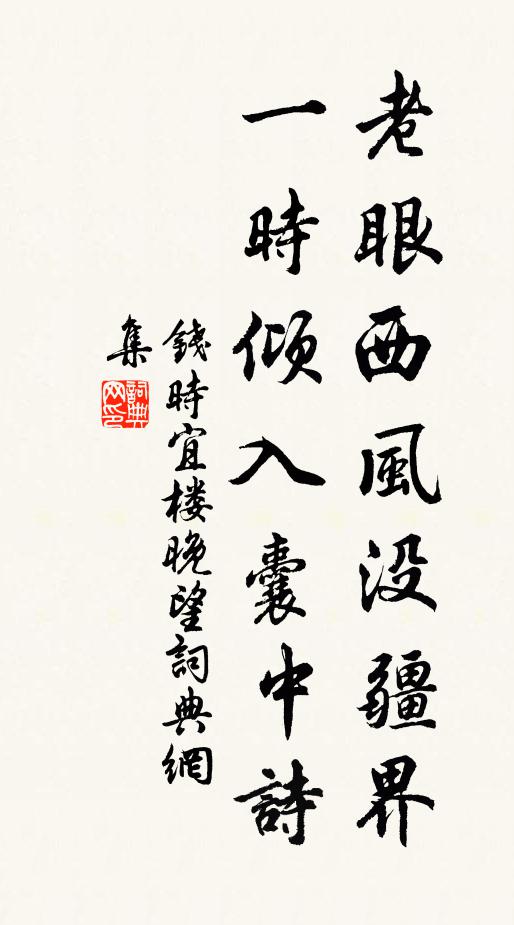 老眼西風没疆界
一時傾入囊中詩
錢時宜楼晚望詞典網
集
詞典網印